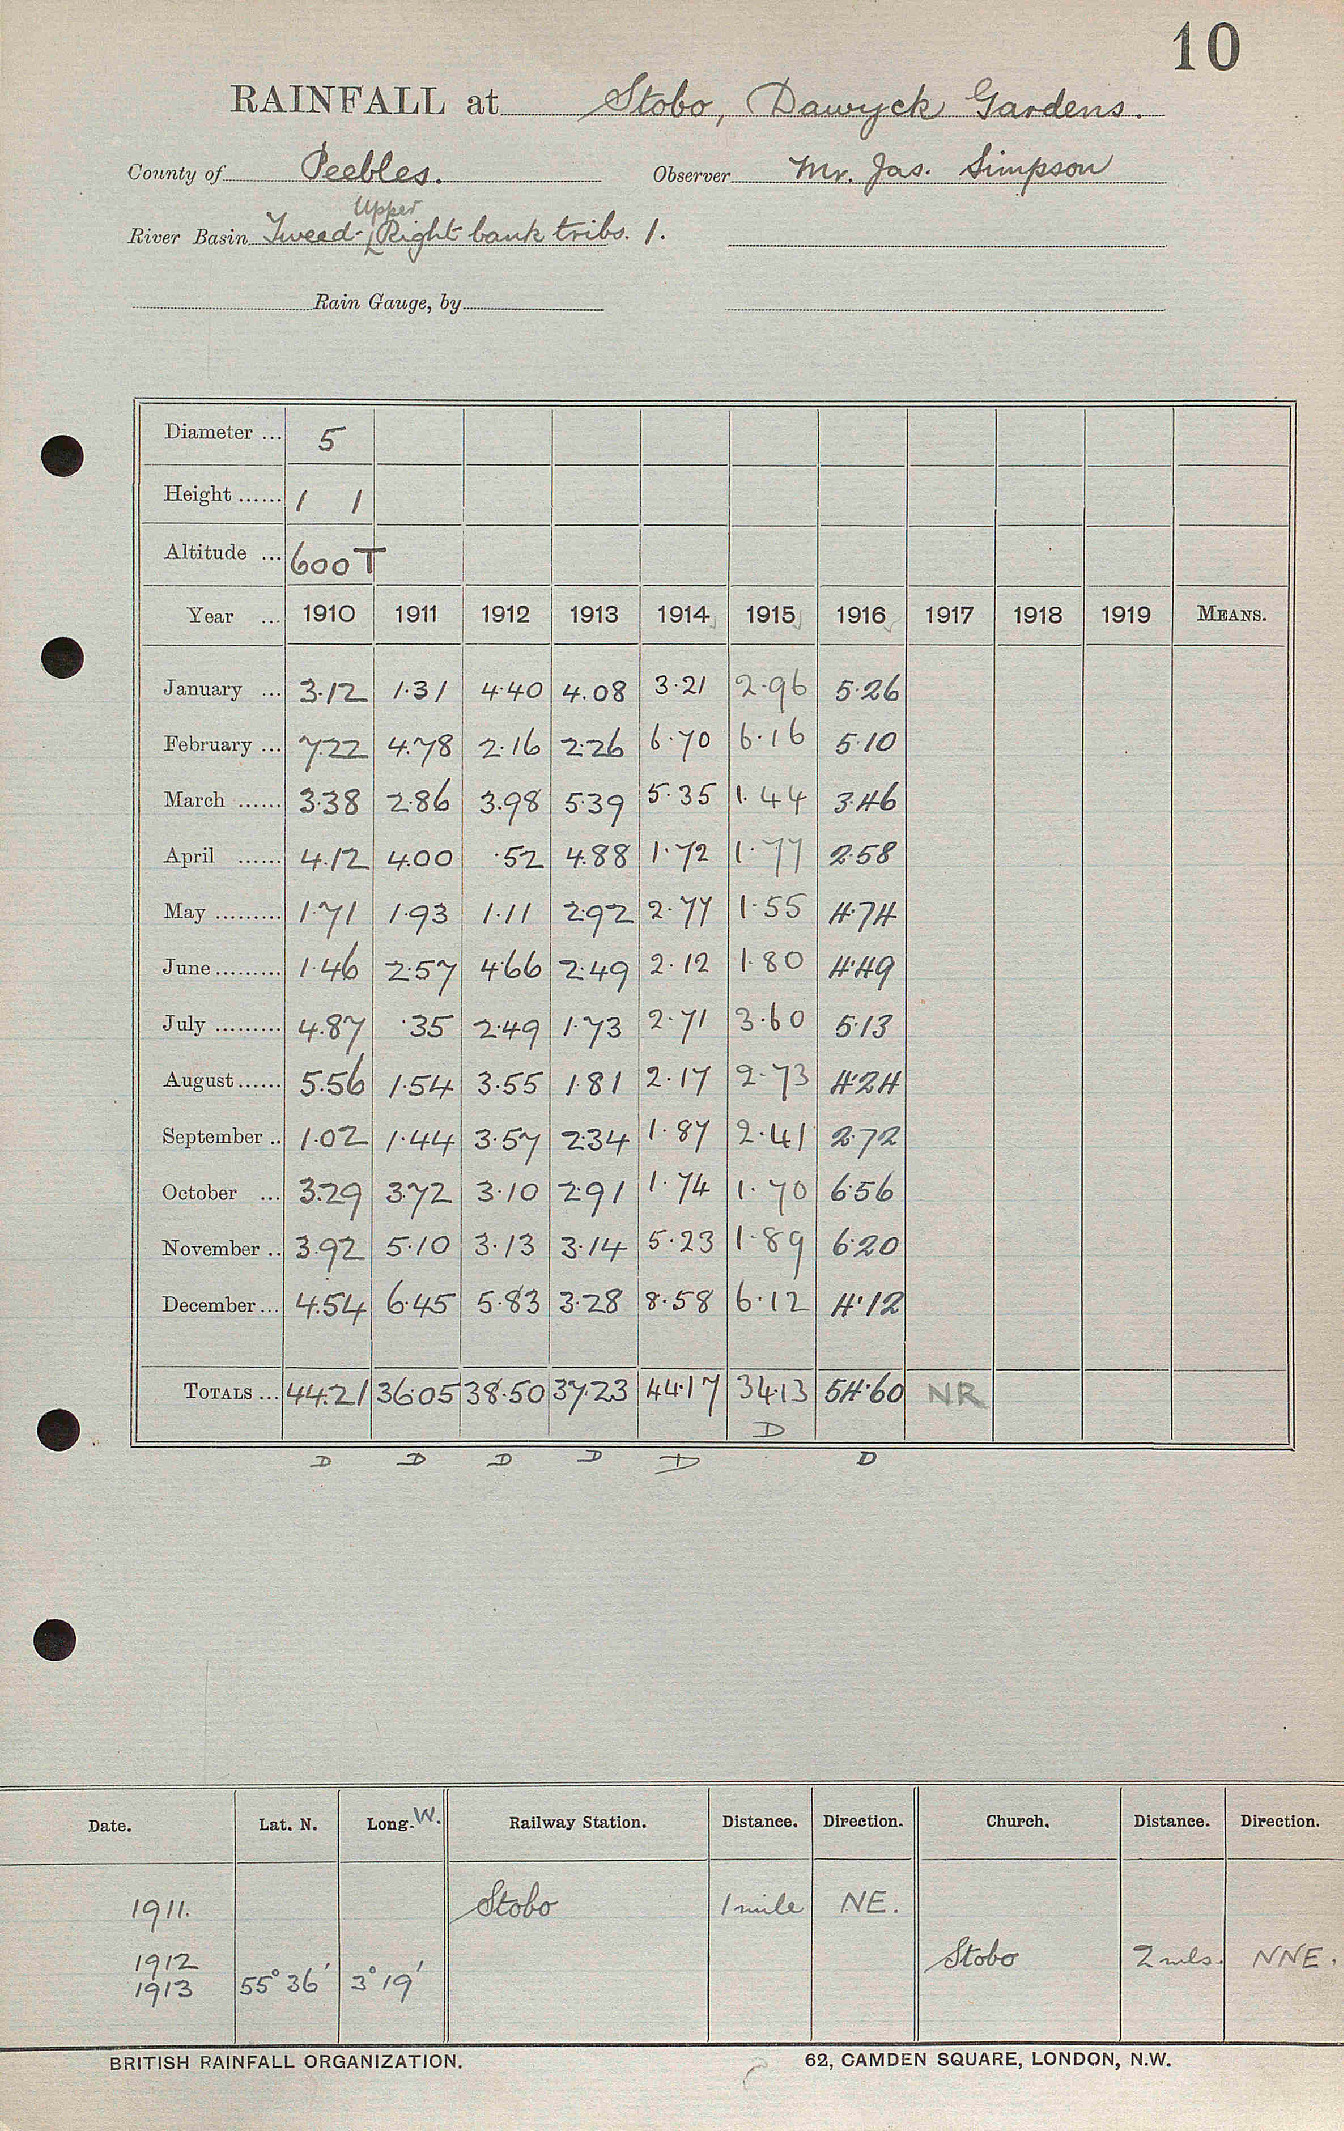 10
RAINFALL at Stobo, Dawyck Gardens.
County of Peebles. Observer Mr. Jas. Simpson
Upper
River Basin Tweed-Right bank tribs. 1.
Rain Gauge, by
Diameter ... 5
Height ...... 1 1
Altitude ... 600 T
Year ... 1910 1911 1912 1913 1914 1915 1916 1917 1918 1919 MEANS.
January ... 3.12 1.31 4.40 4.08 3.21 2.96 5.26
February ... 7.22 4.78 2.16 2.26 6.70 6.16 5.10
March ...... 3.38 2.86 3.98 5.39 5.35 1.44 3.46
April ...... 4.12 4.00 .52 4.88 1.72 1.77 2.58
May ......... 1.71 1.93 1.11 2.92 2.77 1.55 4.74
June ......... 1.46 2.57 4.66 2.49 2.12 1.80 4.49
July ......... 4.87 .35 2.49 1.73 2.71 3.60 5.13
August ...... 5.56 1.54 3.55 1.81 2.17 2.73 4.24
September .. 1.02 1.44 3.57 2.34 1.87 2.41 2.72
October ... 3.29 3.72 3.10 2.91 1.74 1.70 6.56
November .. 3.92 5.10 3.13 3.14 5.23 1.89 6.20
December ... 4.54 6.45 5.83 3.28 8.58 6.12 4.12
TOTALS ... 44.21 36.05 38.50 37.23 44.17 34.13 54.60 NR
D
D D D D D D
Date. Lat. N. Long. W. Railway Station. Distance. Direction. Church. Distance. Direction.
1911. Stobo 1 mile NE.
1912 Stobo 2 mls. NNE.
1913 55° 36' 3° 19'
BRITISH RAINFALL ORGANIZATION. 62, CAMDEN SQUARE, LONDON, N.W.